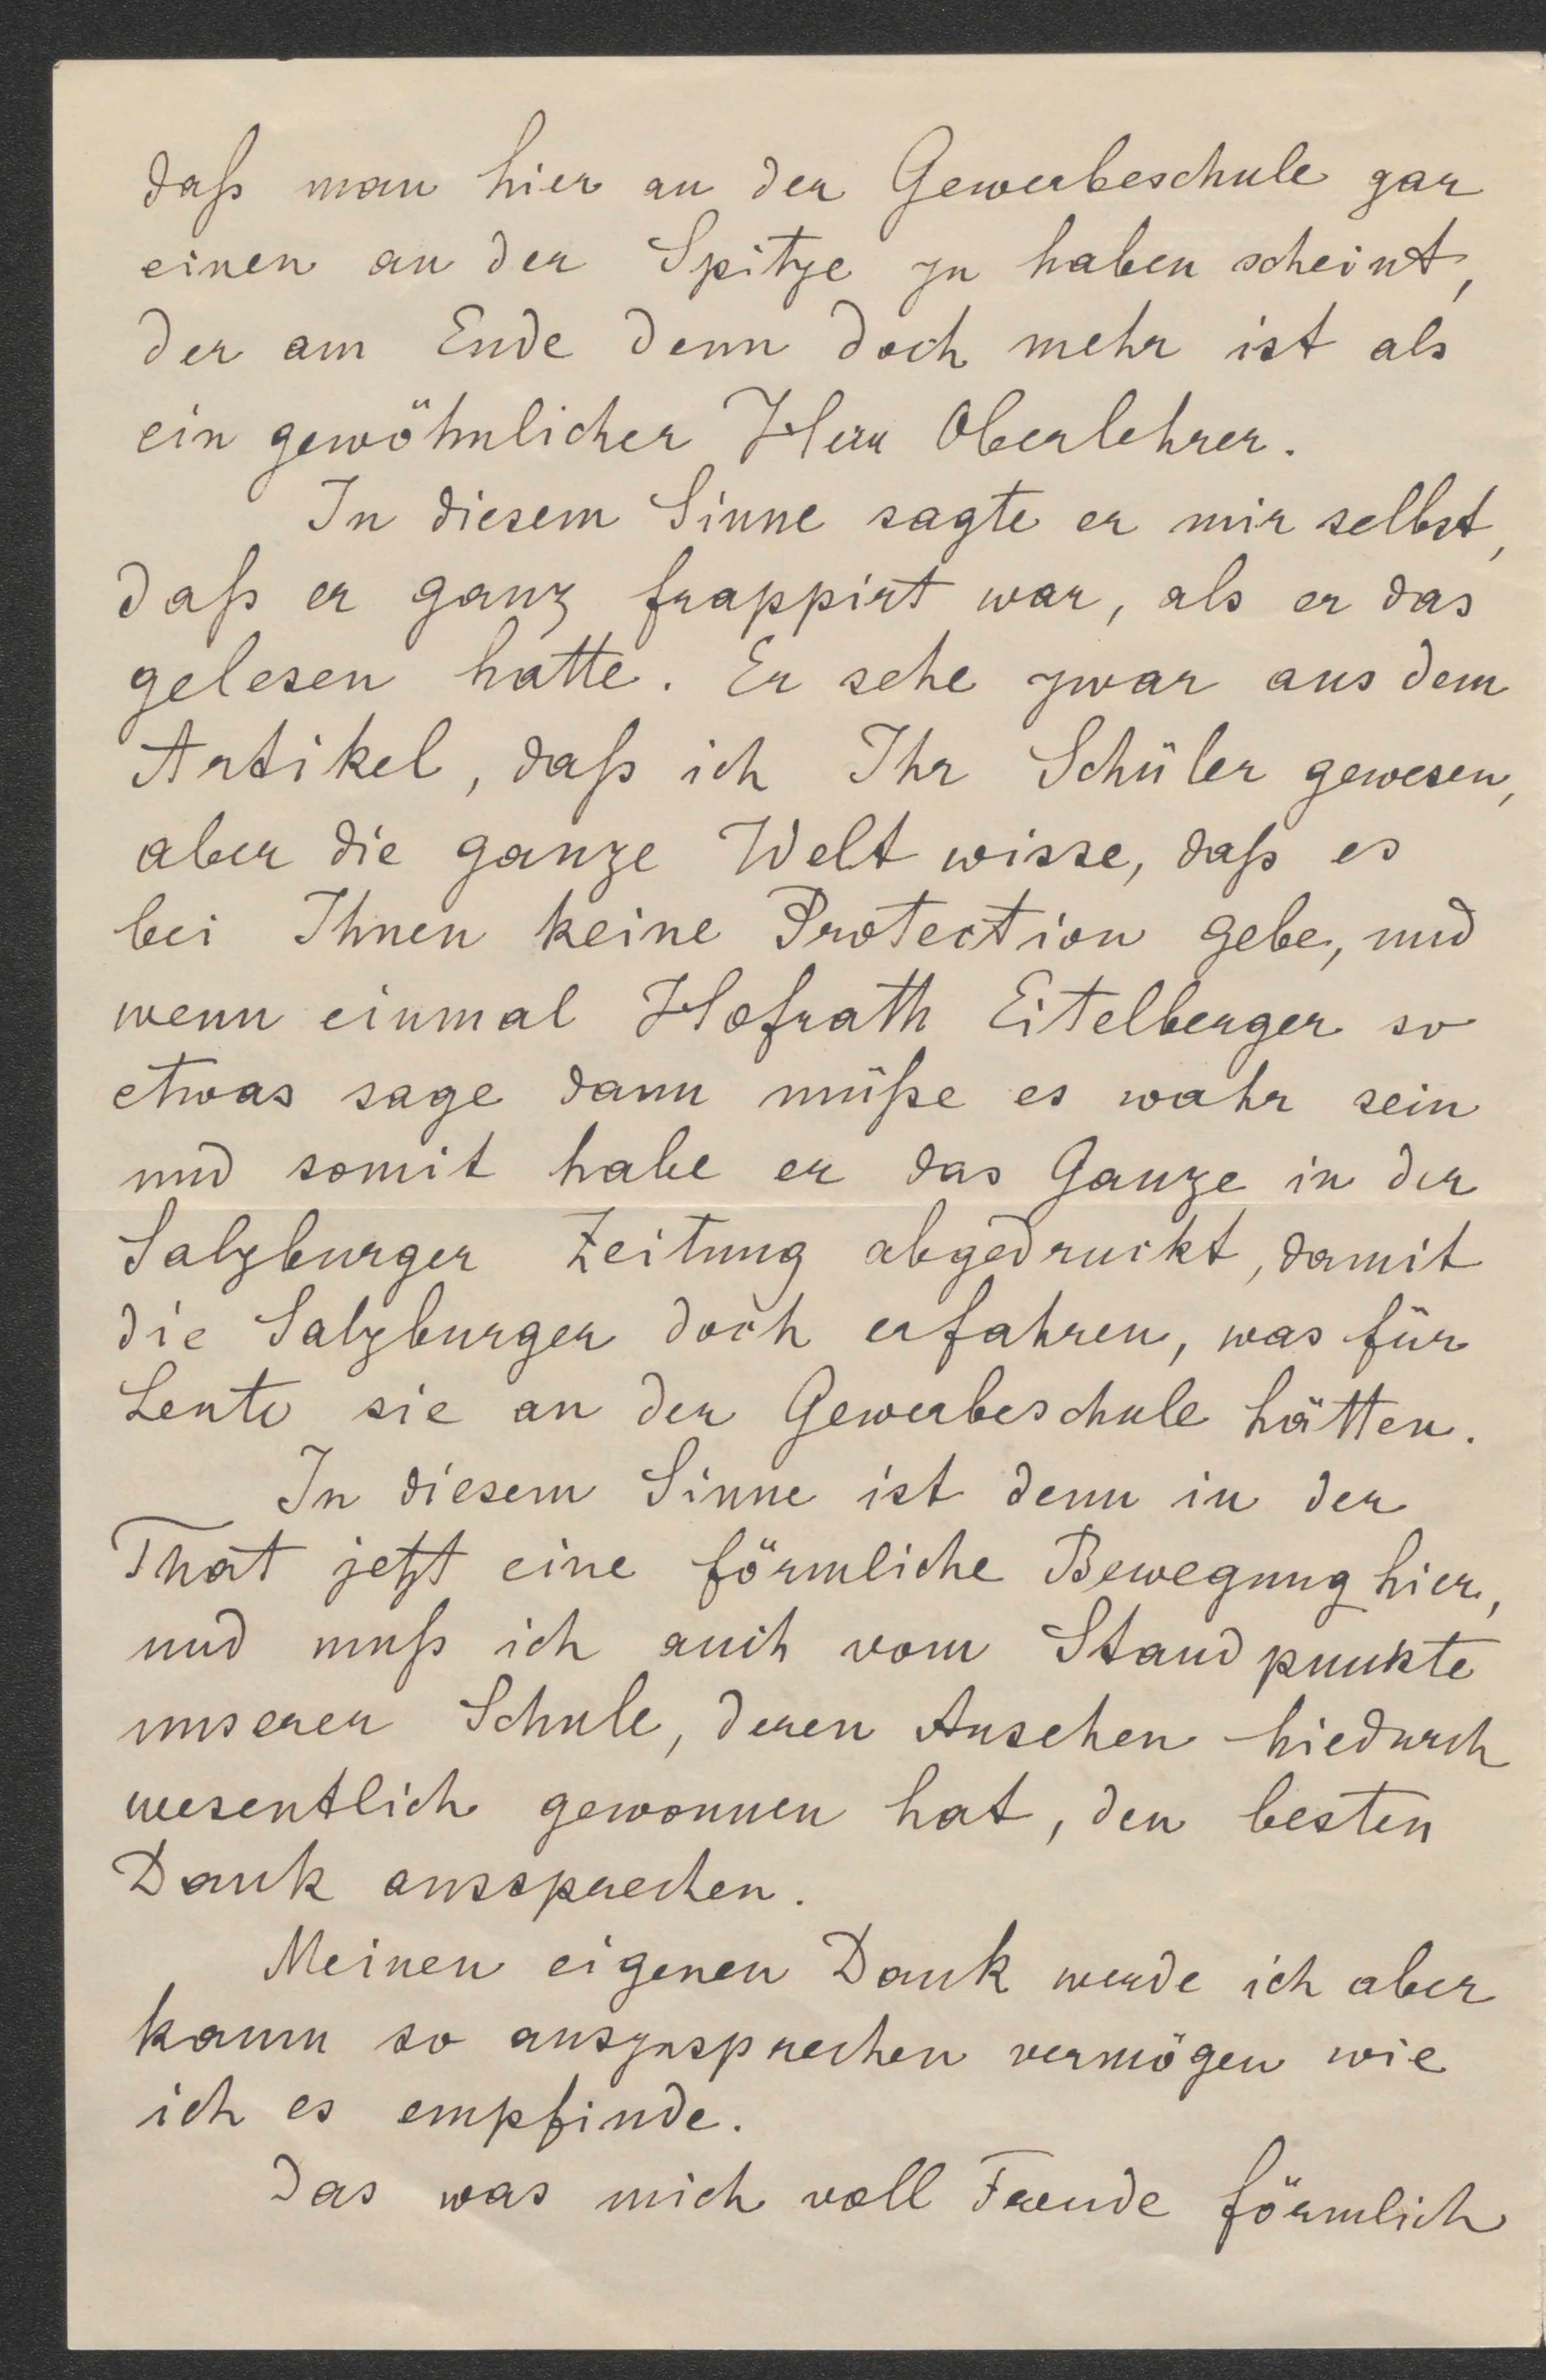 daß man hier an der Gewerbeschule gar
einen an der Spitze zu haben scheint,
der am Ende denn doch mehr ist als
ein gewöhnlicher Herr Oberlehrer.
In diesem Sinne sagte er mir selbst,
daß er ganz frappirt war, als er das
gelesen hatte. Er sehe zwar aus dem
Artikel, daß ich Ihr Schüler gewesen,
aber die ganze Welt wisse, daß es
bei Ihnen keine Protection gebe, und
wenn einmal Hofrath Eitelberger so
etwas sage dann müße es wahr sein
und somit habe er das Ganze in der
Salzburger Zeitung abgedruckt, damit
die Salzburger doch erfahren, was für
Leute sie an der Gewerbeschule hätten.
In diesem Sinne ist denn in der
That jetzt eine förmliche Bewegung hier,
und muß ich auch vom Standpunkte
unserer Schule, deren Ansehen hiedurch
wesentlich gewonnen hat, den besten
Dank aussprechen.
Meinen eigenen Dank werde ich aber
kaum so auszusprechen vermögen wie
ich es empfinde.
Das was mich voll Freude förmlich